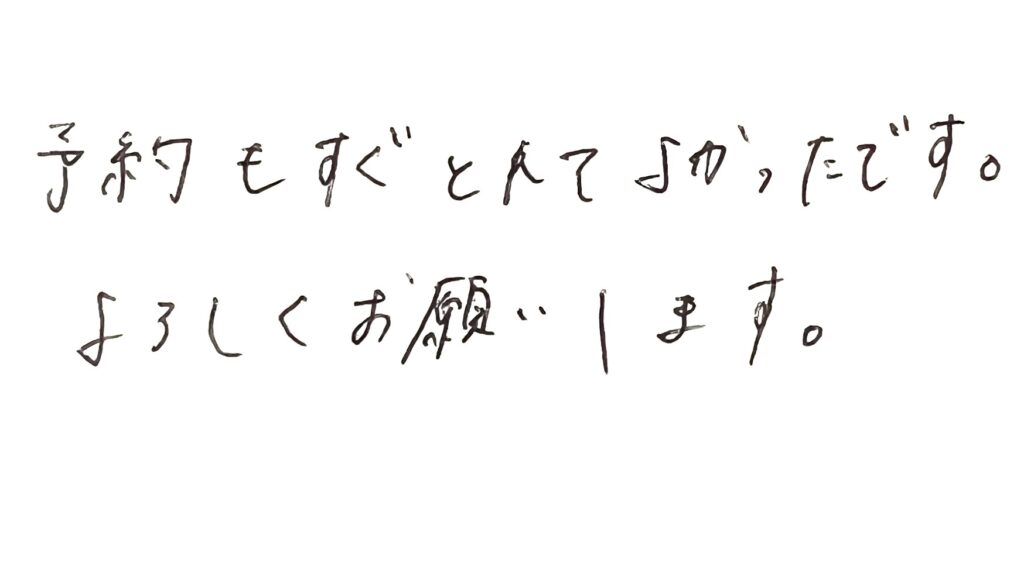 予約もすぐとれてよかったです。
よろしくお願いします。